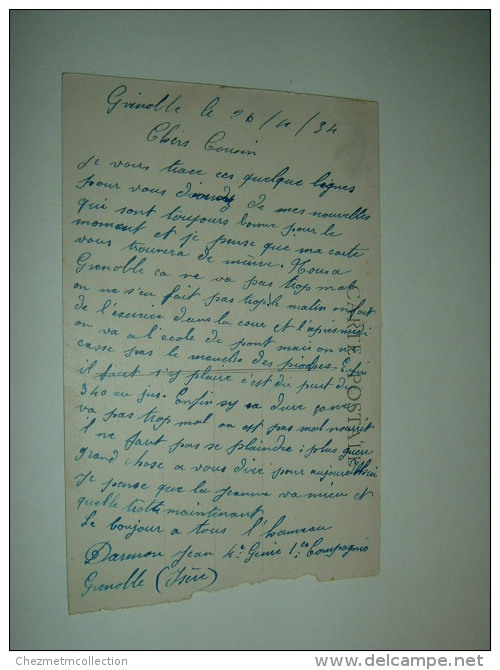 Grenoble le 26/4/34
Chers Cousin
Je vous trace ces quelque lignes
pour vous de mes nouvelles
qui sont toujours bonne pour le
moment et je pense que ma carte
vous trouvera de même. Nous a
Grenoble ca ne va pas trop mal
on ne s'en fait pas trop le matin on fait
de l'exercice dans la cour et l'apres midi
on va a l'école de pont mais on ne
casse pas le manche des pioches. Enfin
il faut s'y plaire c'est dit peut du
340 au jus. Enfin sy sa dure comme
va pas trop mal on est pas mal nourrit
il ne faut pas se plaindre; plus quen
grand chose a vous dire pour aujourd'hui
Je pense que la Jeanne va mieu et
quelle trotte maintenant
Le bonjour a tous l'hameau
Darmon Jean 4e Génie 1er Compagnie
Grenoble (Isère)
CARTE POSTALE
Chezmetmcollection
http://www.delcampe.net